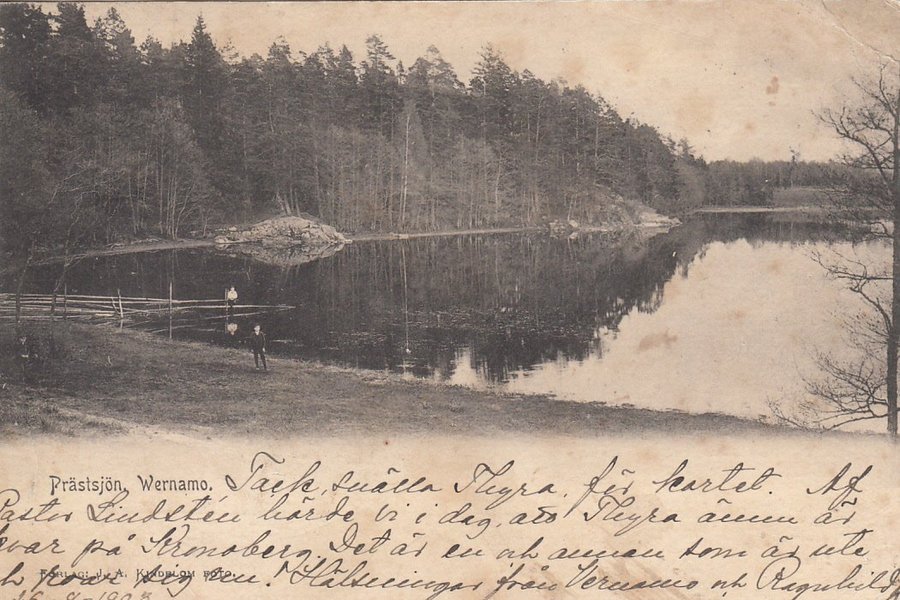 Prästsjön, Wernamo. Tack, snälla Thyra, för kortet. Af
Pastor Lindstén hörde vi i dag, att Thyra ännu är
kvar på Kronoberg. Det är en och annan som är ute
och en! Hälsningar från Vernamo och Ragnhild
FÖRLAG: J. A. KINDBLOM FOTO.
1903